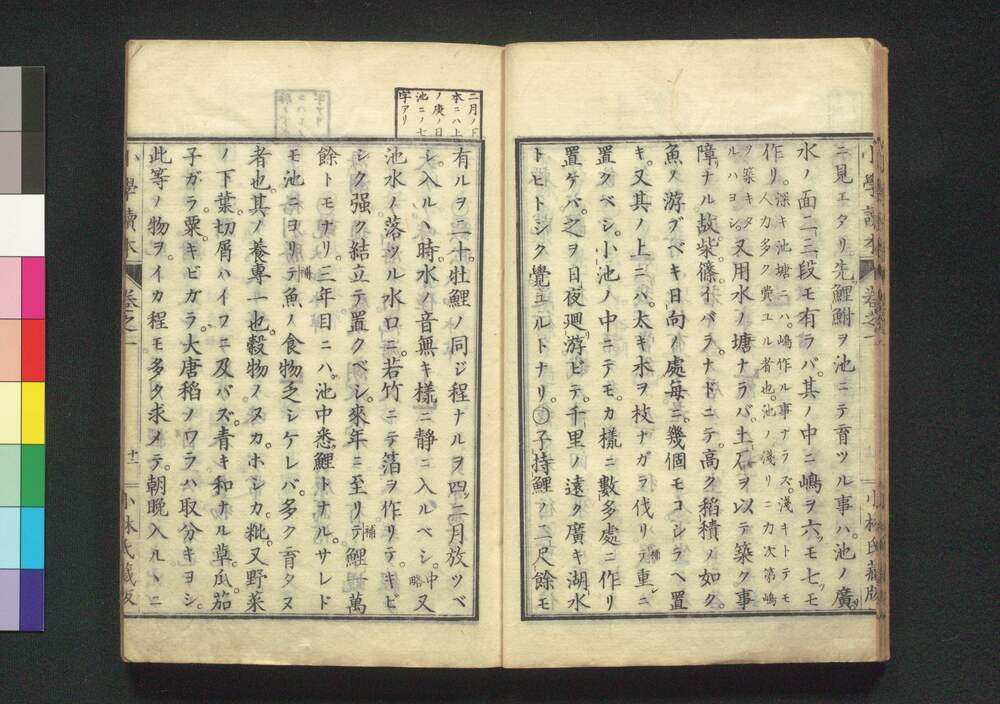 小學讀本 卷之一 小林氏藏版
ニ見エタリ先鯉鮒ヲ池ニテ育ツル事ハ。池ノ廣サ
水ノ面二三段モ有ラバ。其ノ中ニ嶋ヲ六ツモ七ツモ
作レ。深キ池塘ニハ。嶋作ル事ナラズ。淺キトテモ
作リ人力多ク費ユル者也。池ノ淺リニカ次第嶋
ヲ築キタルハヨシ。又用水ノ塘ナラバ。土石ヲ以テ築ク事
障リナル故。柴。篠。イバラ。ナドニテ。高ク稻積ノ如ク。
魚ノ游ブベキ日向ノ處每ニ。幾個モコシラヘ置
キ。又其ノ上ニハ。太キ木ヲ枝ナガラ伐リテ補重シニ
置クベシ。小池ノ中ニテモ。カ樣ニ數多處ニ作リ
置ケバ。之ヲ日夜廻リ游ビテ。千里ノ遠ク廣キ湖水
トヒトシク覺ユルトナリ。○子持鯉ノ二尺餘モ
二月ノ下
本ニハ上
ノ庚ノ日
池ニノ七
字アリ
有ルヲ二十。牡鯉ノ同ジ程ナルヲ四ツ。二月放ツベ
シ。入ルヽ時。水ノ音無キ樣ニ靜ニ入ルベシ。中略又
池水ノ落ツル水口ニ。若竹ニテ箔ヲ作リテ。キビ
シク强ク結立テ置クベシ。來年ニ至リテ補鯉一萬
餘トモナリ。三年目ニハ。池中悉鯉トナル。サレド
モ池ニヨリテ補魚ノ食物乏シケレバ。多ク育タヌ
者也。其ノ養專一也。穀物ノヌカ。ホシカ。粃。又野菜
ノ下葉。切屑ハイフニ及バズ。青キ和ナル草。瓜。茄
子ガラ。粟。キビガラ。大唐稻ノワラハ取分キヨシ。
此等ノ物ヲ。イカ程モ多ク求メテ。朝晩入ルヽニ
小學讀本 卷之一 十一 小林氏藏版